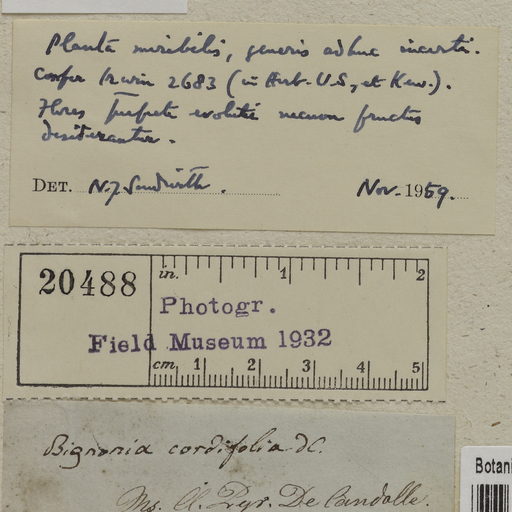 Planta mirabilis, generis adhuc incerti.
Confer Irwin 2683 (in Herb. U.S., et Kew.).
Flores perfecte evoluti necnon fructus
desiderantur.
DET. N.Y. Sandwith. Nov. 1959.
20488
in. 1 2
Photogr.
Field Museum 1932
cm. 1 2 3 4 5
Bignonia cordifolia DC.
Ms. Cl. Pyr. De Candolle.
Botani